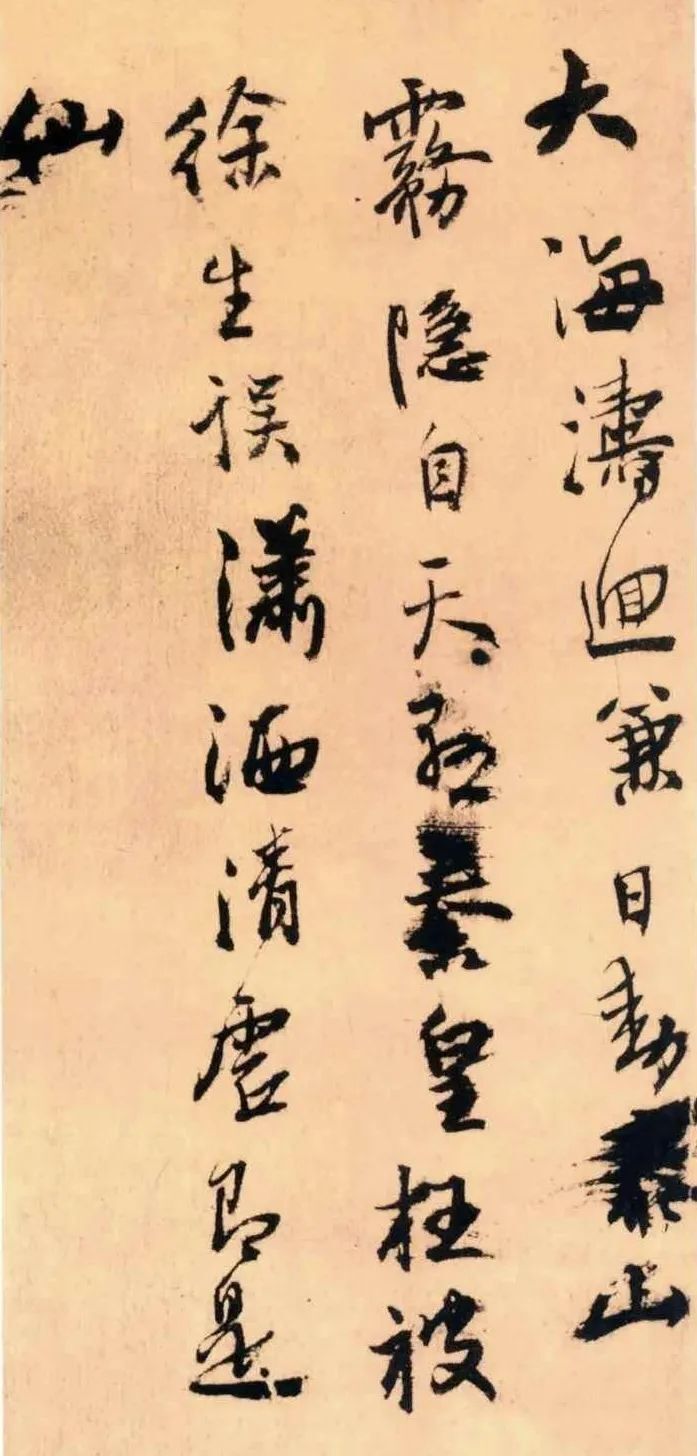 大海濤迴兼日動叢山
霧隱自天秦皇枉被
徐生誤瀟洒清虛即是
仙